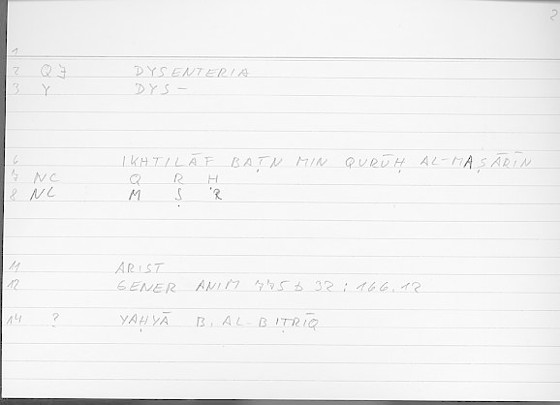 2
1
2 QƎ DYSENTERIA
3 Y DYS-
6 IKHTILĀF BAṬN MIN QURŪḤ AL-MAṢĀRĪN
7 NC Q R Ḥ
8 NC M Ṣ R
11 ARIST
12 GENER ANIM 775 b 32 : 166.12
14 ? YAḤYĀ B. AL-BIṬRĪQ